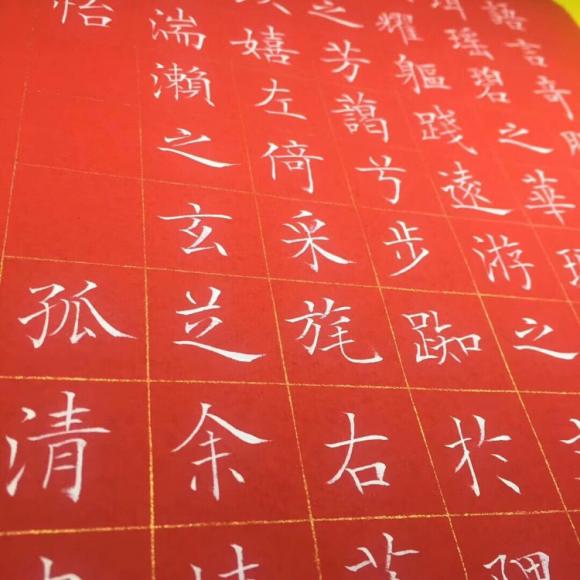 語言奇
瑶碧之華
耀軀踐遠游之
之芳藹兮步踟於
嬉左倚采旄右
湍瀨之玄芝余
孤清